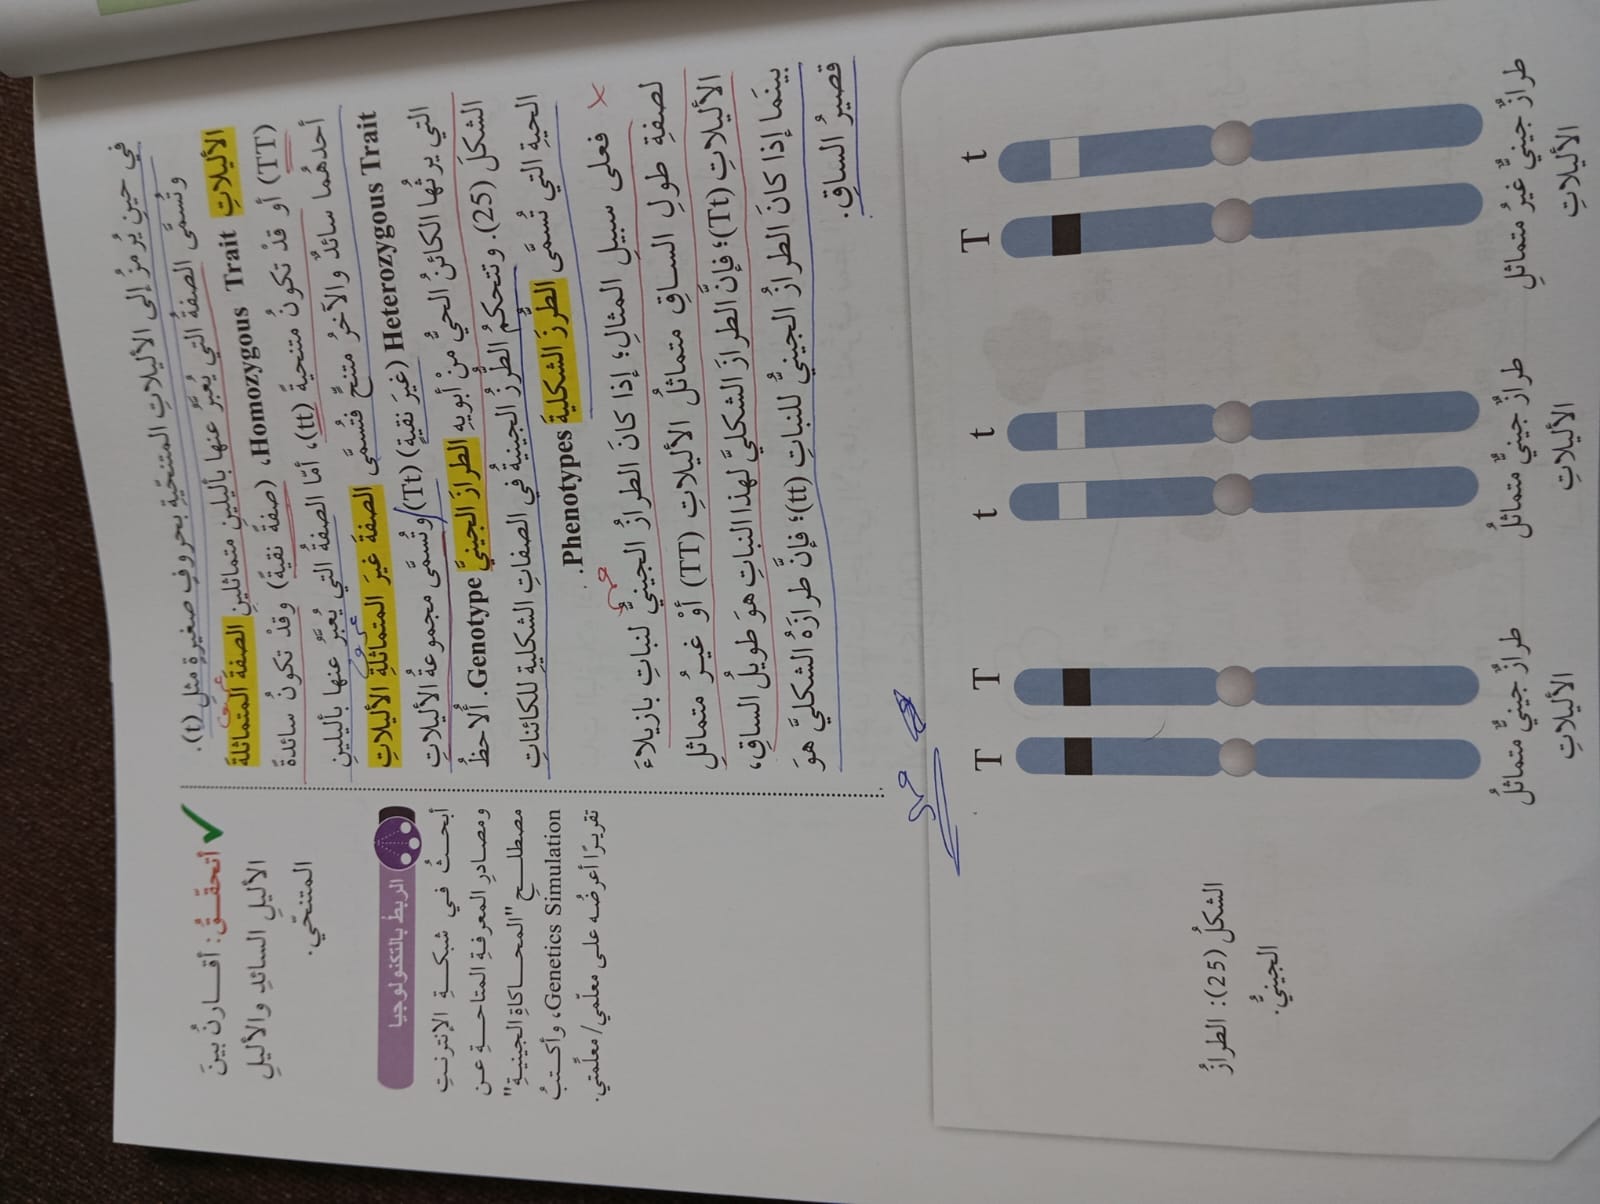 في حينِ يُرمزُ إلى الأليلاتِ المتنحّيةِ بحروفٍ صغيرةٍ مثلِ (t).
وتُسمّى الصفةُ التي يُعبَّرُ عنها بأليلينِ متماثلينِ الصفةَ المتماثلةَ
الأليلاتِ Homozygous Trait، (صفةً نقيةً) وقدْ تكونُ سائدةً
(TT) أو قدْ تكونُ متنحيةً (tt)، أمّا الصفةُ التي يُعبَّرُ عنها بأليلينِ
أحدُهُما سائدٌ والآخرُ متنحٍّ فتُسمّى الصفةَ غيرَ المتماثلةِ الأليلاتِ
Heterozygous Trait (غيرَ نقيةٍ) (Tt) وتُسمّى مجموعةُ الأليلاتِ
التي يرثُها الكائنُ الحيُّ منْ أبويهِ الطرازَ الجينيَّ Genotype. ألاحظُ
الشكلَ (25). وتتحكمُ الطُّرزُ الجينيةُ في الصفاتِ الشكليةِ للكائناتِ
الحيةِ التي تُسمَّى الطُّرزَ الشكليةَ Phenotypes.
فعلى سبيلِ المثالِ؛ إذا كانَ الطرازُ الجينيُّ لنباتِ بازيلاءَ
لصفةِ طولِ الساقِ متماثلُ الأليلاتِ (TT) أوْ غيرُ متماثلِ
الأليلاتِ (Tt)؛ فإنَّ الطرازَ الشكليَّ لهذا النباتِ هوَ طويلُ الساقِ،
بينَما إذا كانَ الطرازُ الجينيُّ للنباتِ (tt)؛ فإنَّ طرازَهُ الشكليَّ هوَ
قصيرُ الساقِ.
أتحقّقُ: أقارنُ بينَ
الأليلِ السائدِ والأليلِ
المتنحّي.
الربطُ بالتكنولوجيا
أبحثُ في شبكةِ الإنترنتِ
ومصادرِ المعرفةِ المتاحةِ عن
مصطلحِ "المحاكاةِ الجينيةِ"
Genetics Simulation، وأكتبُ
تقريرًا أعرضُه على معلّمي/ معلّمتي.
الشكلُ (25): الطرازُ
الجينيُّ.
T T
t t
T t
طرازٌ جينيٌّ متماثلُ
الأليلاتِ
طرازٌ جينيٌّ متماثلُ
الأليلاتِ
طرازٌ جينيٌّ غيرُ متماثلِ
الأليلاتِ